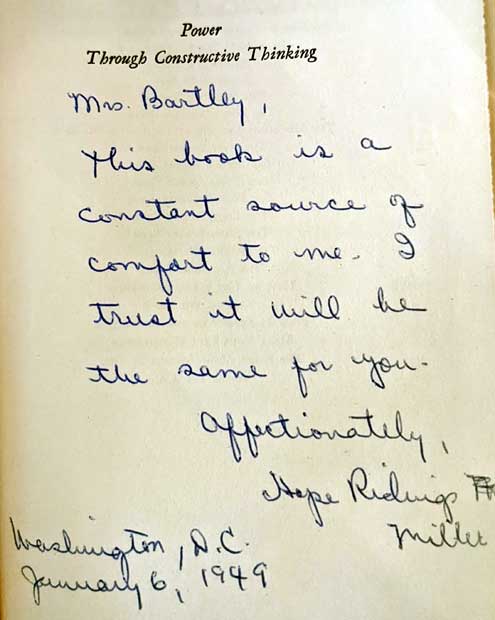 Power
Through Constructive Thinking
Mrs. Bartley,
This book is a
constant source of
comfort to me. I
trust it will be
the same for you.
Affectionately,
Hope Ridings
Miller
Washington, D.C.
January 6, 1949